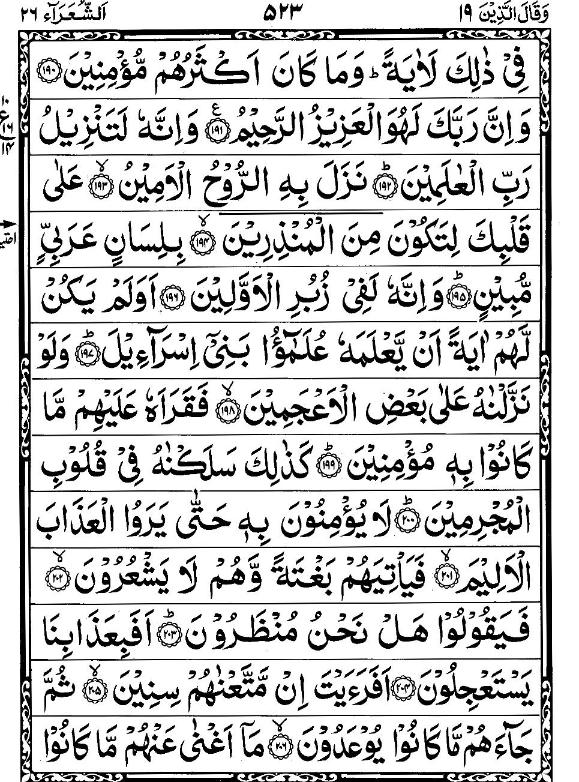 وَقَالَ الَّذِيْنَ ١٩ ٥٢٣ اَلشُّعَرَآء ٢٦
فِىْ ذٰلِكَ لَاٰيَةً ؕ وَمَا كَانَ اَكْثَرُهُمْ مُّؤْمِنِيْنَ ﴿١٩٠﴾
وَاِنَّ رَبَّكَ لَهُوَ الْعَزِيْزُ الرَّحِيْمُ ﴿١٩١﴾ ع وَاِنَّهٗ لَتَنْزِيْلُ
رَبِّ الْعٰلَمِيْنَ ؕ ﴿١٩٢﴾ نَزَلَ بِهِ الرُّوْحُ الْاَمِيْنُ ۙ ﴿١٩٣﴾ عَلٰى
قَلْبِكَ لِتَكُوْنَ مِنَ الْمُنْذِرِيْنَ ۙ ﴿١٩٤﴾ بِلِسَانٍ عَرَبِىٍّ
مُّبِيْنٍ ؕ ﴿١٩٥﴾ وَاِنَّهٗ لَفِىْ زُبُرِ الْاَوَّلِيْنَ ﴿١٩٦﴾ اَوَلَمْ يَكُنْ
لَّهُمْ اٰيَةً اَنْ يَّعْلَمَهٗ عُلَمٰٓؤُا بَنِىْٓ اِسْرَآءِيْلَ ؕ ﴿١٩٧﴾ وَلَوْ
نَزَّلْنٰهُ عَلٰى بَعْضِ الْاَعْجَمِيْنَ ۙ ﴿١٩٨﴾ فَقَرَاَهٗ عَلَيْهِمْ مَّا
كَانُوْا بِهٖ مُؤْمِنِيْنَ ؕ ﴿١٩٩﴾ كَذٰلِكَ سَلَكْنٰهُ فِىْ قُلُوْبِ
الْمُجْرِمِيْنَ ؕ ﴿٢٠٠﴾ لَا يُؤْمِنُوْنَ بِهٖ حَتّٰى يَرَوُا الْعَذَابَ
الْاَلِيْمَ ۙ ﴿٢٠١﴾ فَيَاْتِيَهُمْ بَغْتَةً وَّهُمْ لَا يَشْعُرُوْنَ ۙ ﴿٢٠٢﴾
فَيَقُوْلُوْا هَلْ نَحْنُ مُنْظَرُوْنَ ؕ ﴿٢٠٣﴾ اَفَبِعَذَابِنَا
يَسْتَعْجِلُوْنَ ﴿٢٠٤﴾ اَفَرَءَيْتَ اِنْ مَّتَّعْنٰهُمْ سِنِيْنَ ۙ ﴿٢٠٥﴾ ثُمَّ
جَآءَهُمْ مَّا كَانُوْا يُوْعَدُوْنَ ۙ ﴿٢٠٦﴾ مَاۤ اَغْنٰى عَنْهُمْ مَّا كَانُوْا
١٠
ع
١٦
١٤